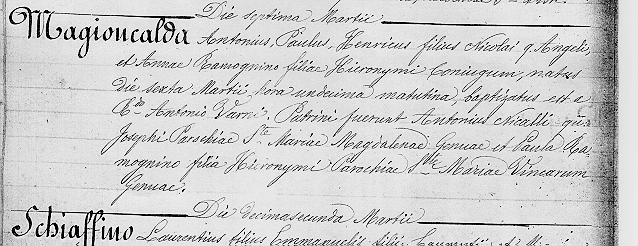 Die septima Martii
Magioncalda Antonius, Paulus, Henricus filius Nicolai q. Angeli,
et Annae Ramognino filiae Hieronymi Coniugum, natus
die sexta Martii, hora undecima matutina, baptizatus est a
Rdo Antonio Varni. Patrini fuerunt Antonius Nicalli qm
Josephi Paroechiae Stae Mariae Magdalenae Genuae et Paula Ra-
mognino filia Hieronymi Parochiae Stae Mariae Vinearum
Genuae.
Die decimasecunda Martii
Schiaffino Laurentius filius Emmanuelis filii Laurentii et